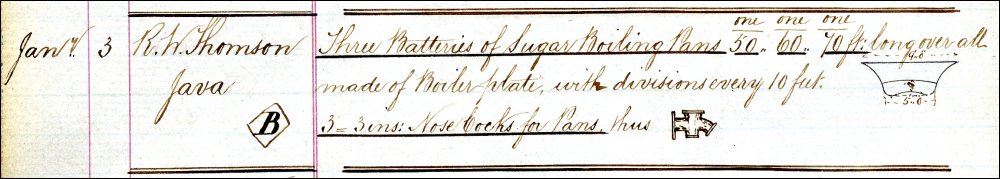 one one one
Jany. 3 R. W. Thomson Three Batteries of Sugar Boiling Pans 50, 60, 70 ft: long over all
Java made of Boiler plate, with divisions every 10 feet.
9'.0
3'.0
B 3 = 3 ins: Nose Cocks for Pans, thus